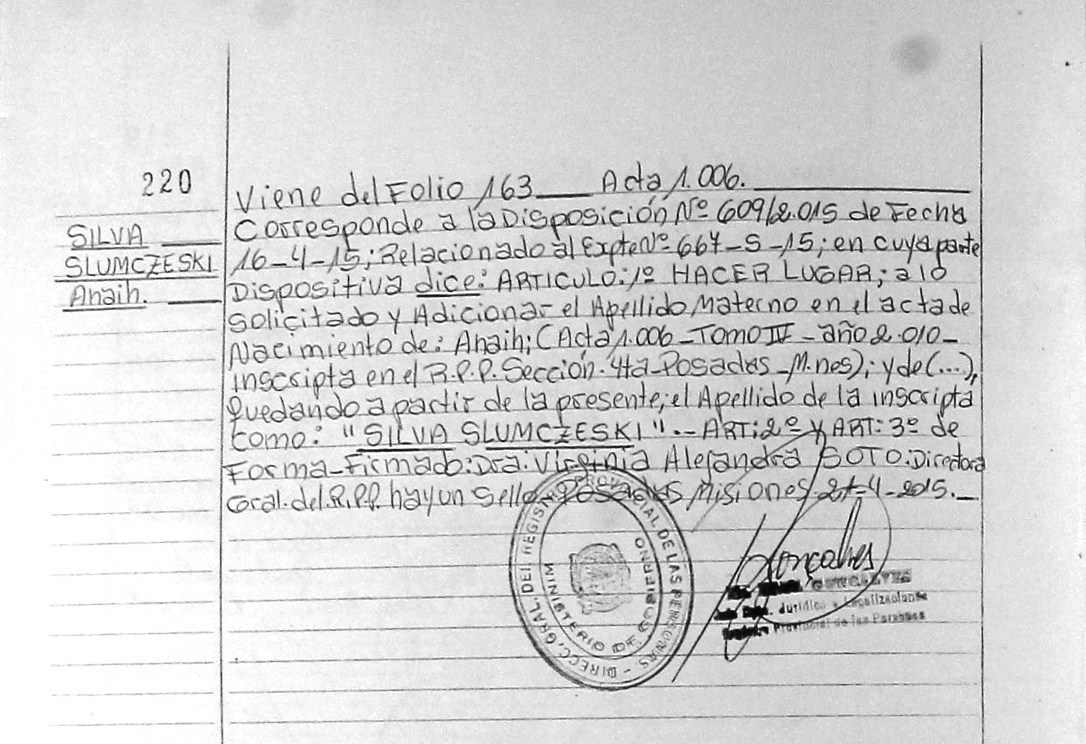 220
SILVA
SLUMCZESKI
Anaih.
Viene del Folio 163 Acta 1.006.
Corresponde a la Disposición Nº 609/2.015 de Fecha
16-4-15; Relacionado al Expte Nº 667-S-15; en cuya parte
Dispositiva dice: ARTICULO: 1º HACER LUGAR; a lo
solicitado y Adicionar el Apellido Materno en el acta de
Nacimiento de: Anaih; (Acta 1.006 - TOMO IV - año 2.010-
inscripta en el R.P.P. Sección. 4ta-Posadas-M.nes); y de (...),
Quedando a partir de la presente; el Apellido de la inscripta
como: "SILVA SLUMCZESKI".- ART: 2º y ART: 3º de
Forma-Firmado: Dra. Virginia Alejandra SOTO. Directora
Gral. del R.P.P. hay un Sello-Posadas Misiones 27-4-2015.-
DIRECC. GRAL. DEL REGISTRO PROVINCIAL DE LAS PERSONAS -
MINISTERIO DE GOBIERNO
Gonçalves
GONCALVES
Jurídico y Legalizaciones
Registro Provincial de las Personas